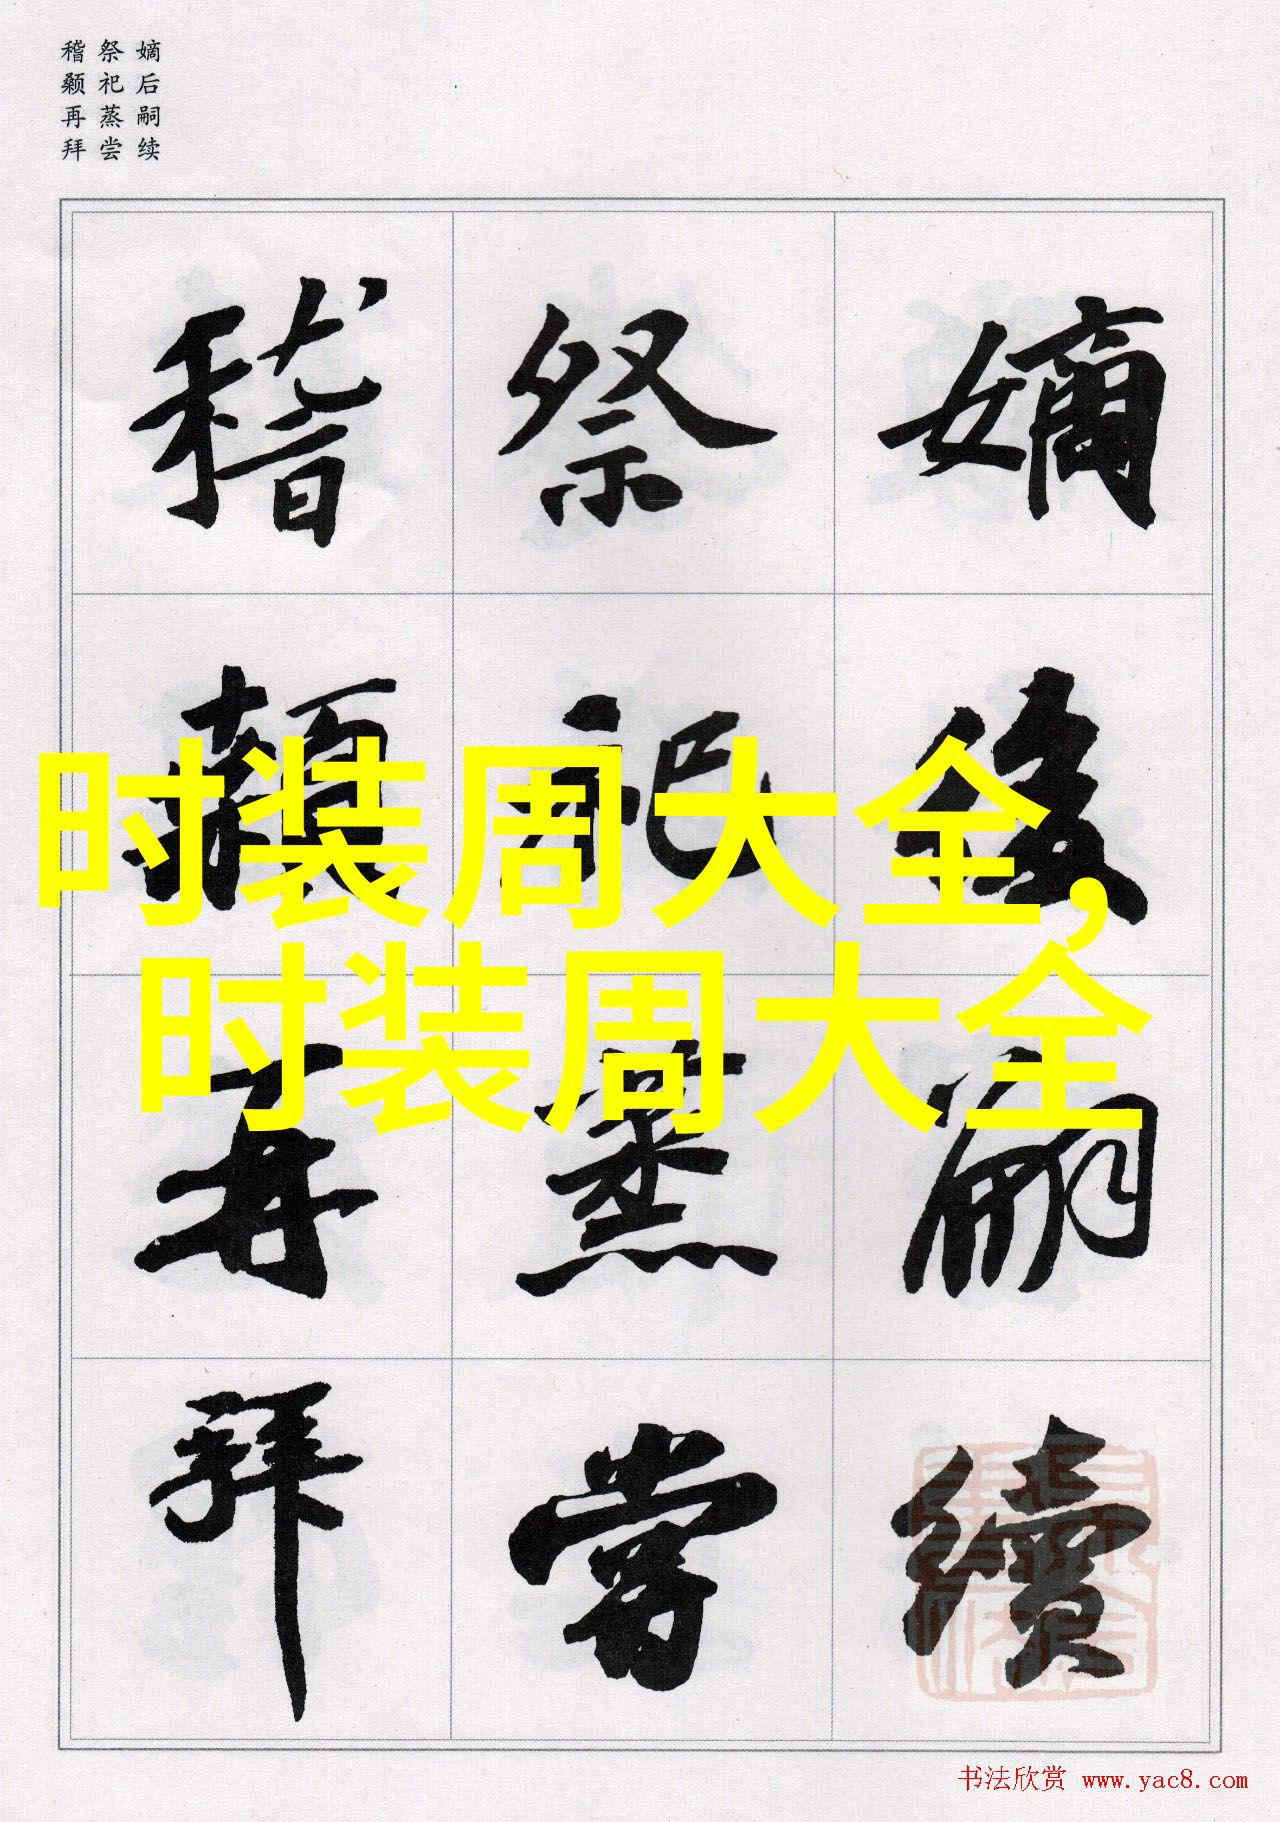 嫡后嗣续
祭祀蒸尝
稽颡再拜
嫡後嗣續
祭祀蒸嘗
稽顙再拜
时装周大全,
时装周大全
书法欣赏 www.yac8.com